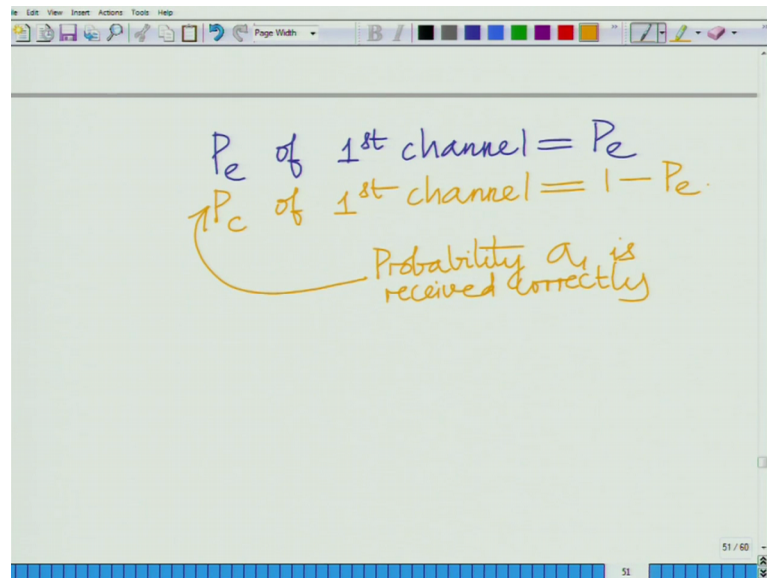 le Edit View Insert Actions Tools Help
Page Width
B I
Pe of 1st channel = Pe
Pc of 1st channel = 1 - Pe.
Probability a1 is
received correctly
51 / 60
51